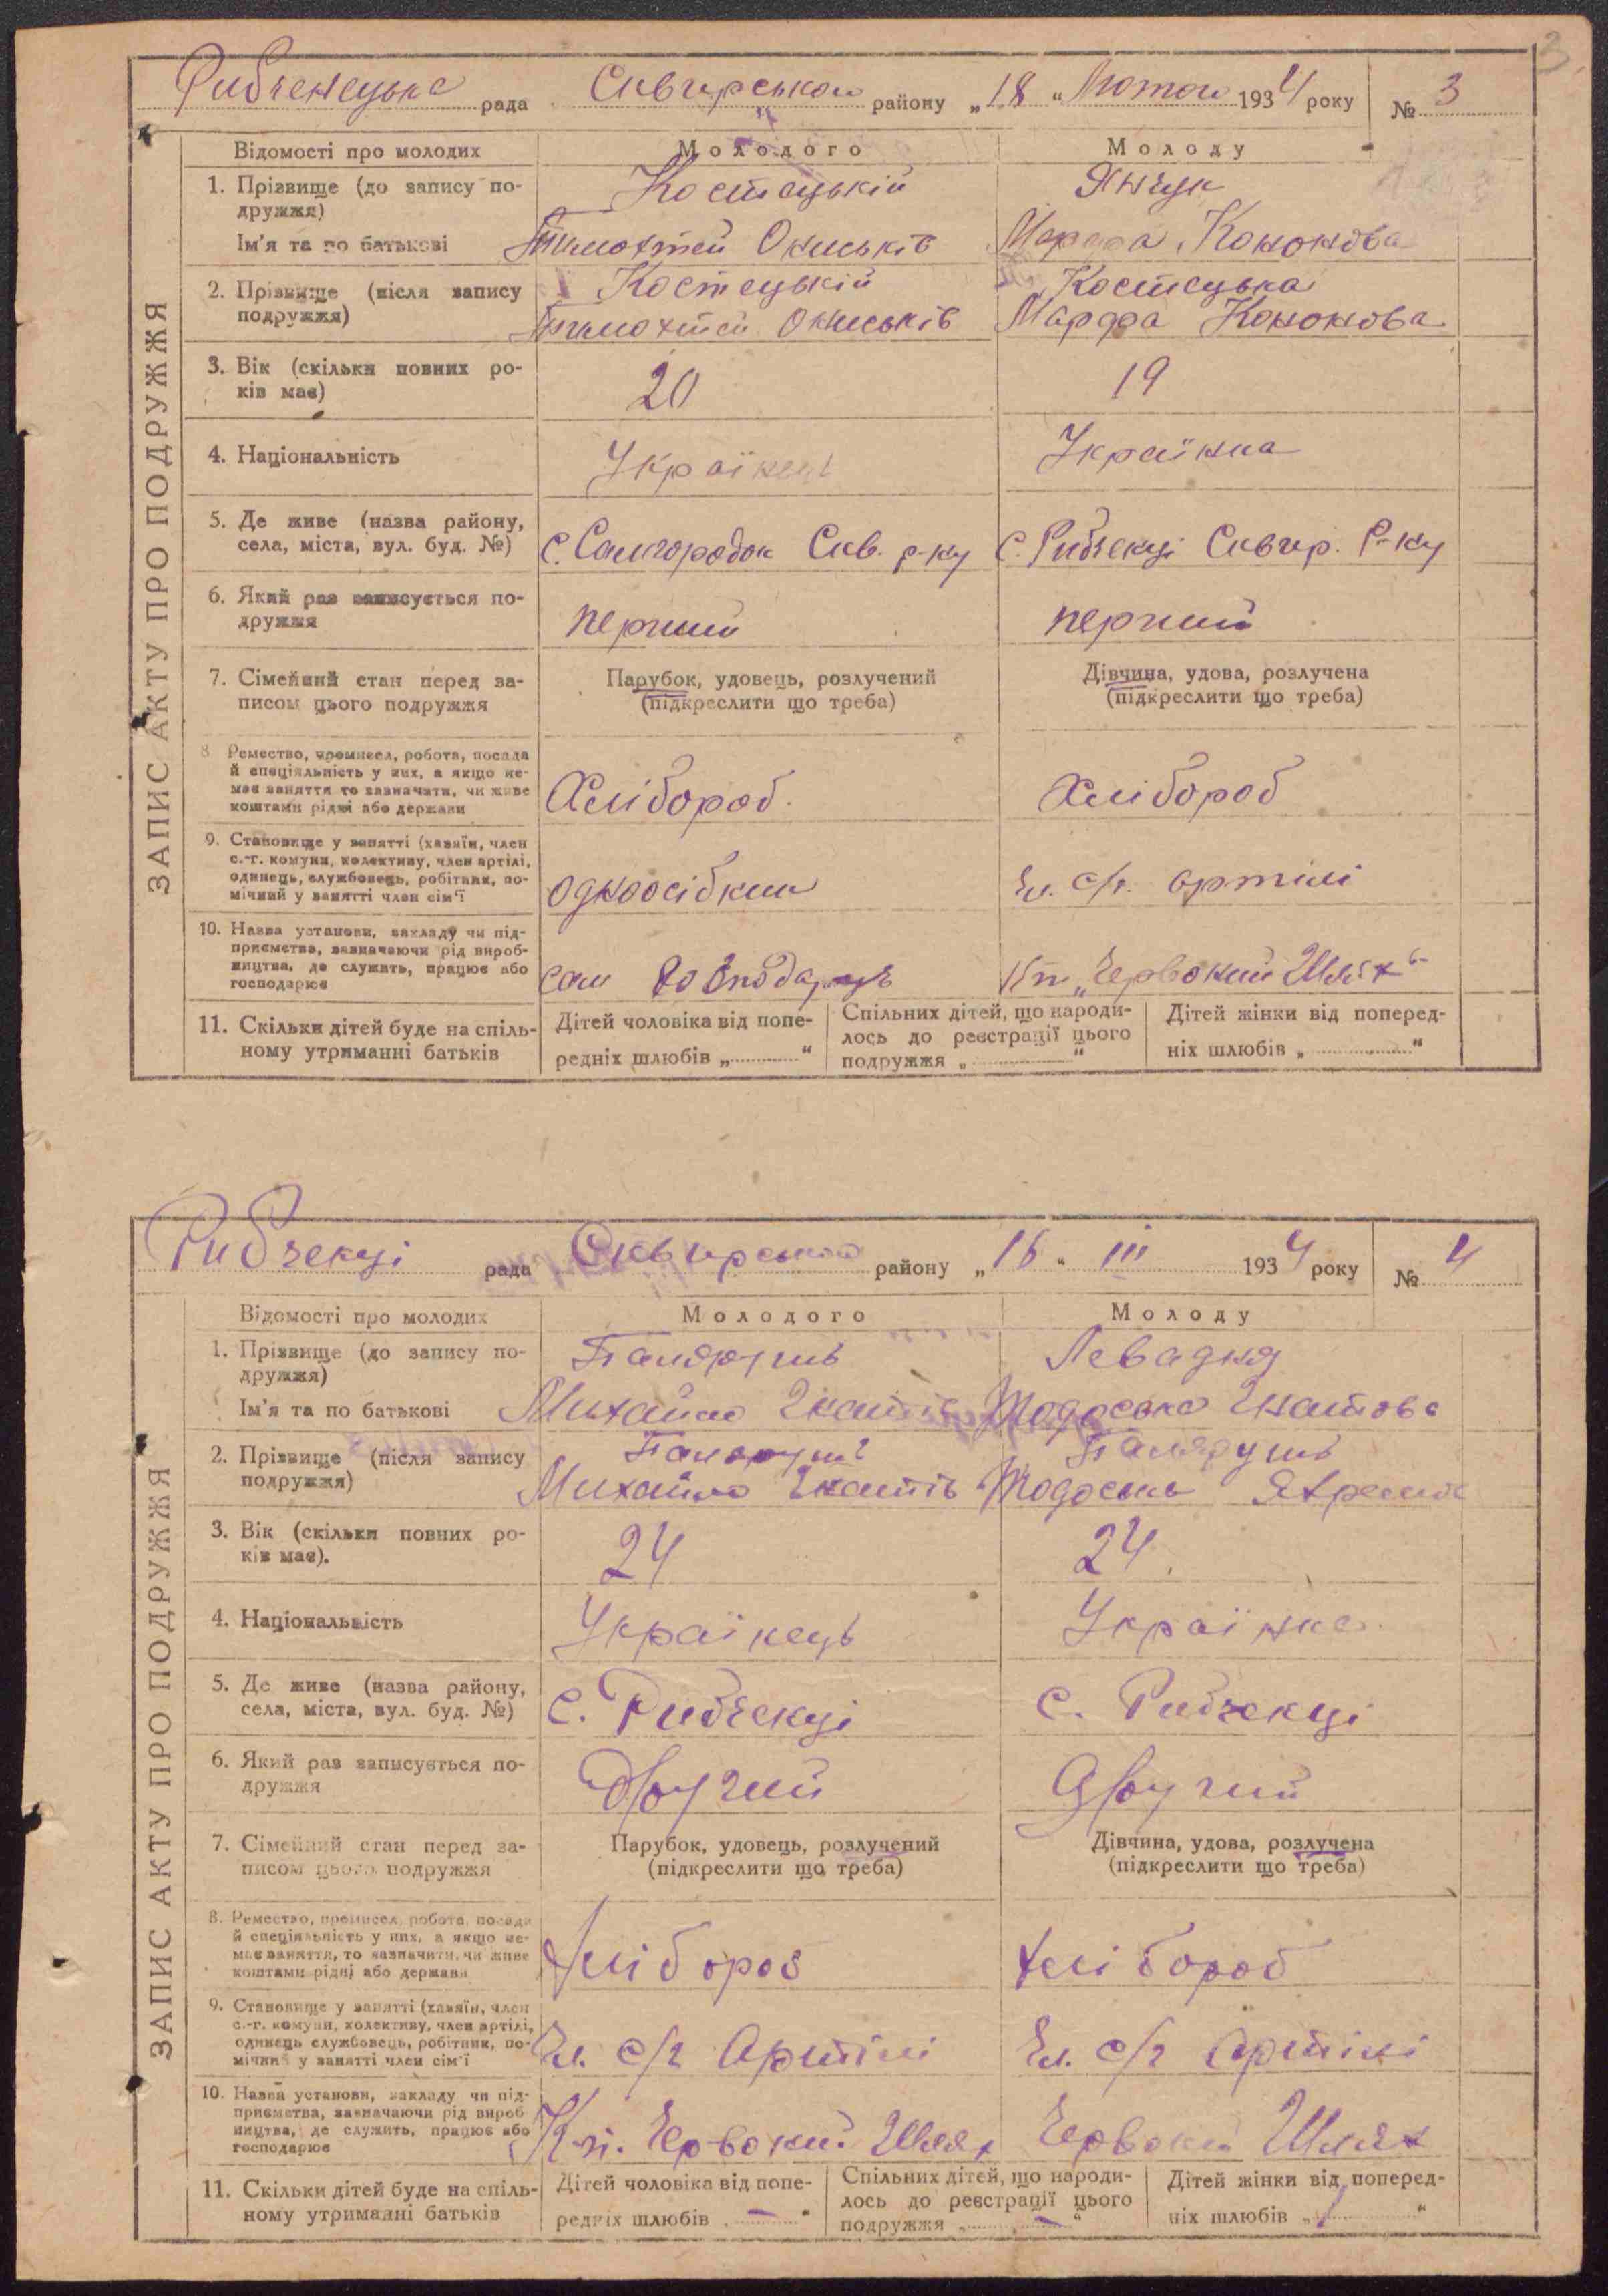 3
Рибченецька рада Сквирського району „18" Лютого 1934 року № 3
ЗАПИС АКТУ ПРО ПОДРУЖЖЯ
Відомості про молодих Молодого Молоду
1. Прізвище (до запису по- Костецькій Янчук
дружжя)
Ім'я та по батькові Тимохтей Ониськів Марфа Кононова
2. Прізвище (після запису Костецькій Костецька
подружжя) Тимохтей Ониськів Марфа Кононова
3. Вік (скільки повних ро- 20 19
ків має)
4. Національність Українець Українка
5. Де живе (назва району,
села, міста, вул. буд. №) с. Самгородок Скв. р-ну с. Рибченці Сквир. Р-ну
6. Який раз записується по-
дружжя перший перший
7. Сімейний стан перед за- Парубок, удовець, розлучений Дівчина, удова, розлучена
писом цього подружжя (підкреслити що треба) (підкреслити що треба)
8. Ремество, промисел, робота, посада
й спеціяльність у них, а якщо не-
має заняття то зазначити, чи живе
коштами рідні або держави Хлібороб. Хлібороб
9. Становище у занятті (хазяїн, член
с.-г. комуни, колективу, член артілі,
одинець, службовець, робітник, по-
мічний у занятті член сім'ї одноосібник Чл. с/г. артілі
10. Назва установи, закладу чи під-
приємства, зазначаючи рід вироб-
ництва, де служить, працює або
господарює сам Кп „Червоний Шлях"
11. Скільки дітей буде на спіль- Дітей чоловіка від попе- Спільних дітей, що народи- Дітей жінки від поперед-
ному утриманні батьків редніх шлюбів „ " лось до реєстрації цього ніх шлюбів „ "
подружжя „ "
Рибченці рада Сквирський району „16" III 1934 року № 4
ЗАПИС АКТУ ПРО ПОДРУЖЖЯ
Відомості про молодих Молодого Молоду
1. Прізвище (до запису по- Левадня
дружжя)
Ім'я та по батькові Михайло Гнатів Тодоська Гнатова
2. Прізвище (після запису
подружжя) Михайло Гнатів Тодоська
3. Вік (скільки повних ро- 24 24
ків має).
4. Національність Українець Українка
5. Де живе (назва району,
села, міста, вул. буд. №) с. Рибченці с. Рибченці
6. Який раз записується по-
дружжя Другий Другий
7. Сімейний стан перед за- Парубок, удовець, розлучений Дівчина, удова, розлучена
писом цього подружжя (підкреслити що треба) (підкреслити що треба)
8. Ремество, промисел, робота, посада
й спеціяльність у них, а якщо не-
має заняття, то зазначити, чи живе
коштами рідні або держави Хлібороб Хлібороб
9. Становище у занятті (хазяїн, член
с.-г. комуни, колективу, член артілі,
одинець службовець, робітник, по-
мічний у занятті член сім'ї Чл. с/г Артілі Чл. с/г Артілі
10. Назва установи, закладу чи під-
приємства, зазначаючи рід вироб
ництва, де служить, працює або
господарює К-п. Червоний Шлях Червоний Шлях
11. Скільки дітей буде на спіль- Дітей чоловіка від попе- Спільних дітей, що народи- Дітей жінки від поперед-
ному утриманні батьків редніх шлюбів „ — " лось до реєстрації цього ніх шлюбів „ 1 "
подружжя „ — "